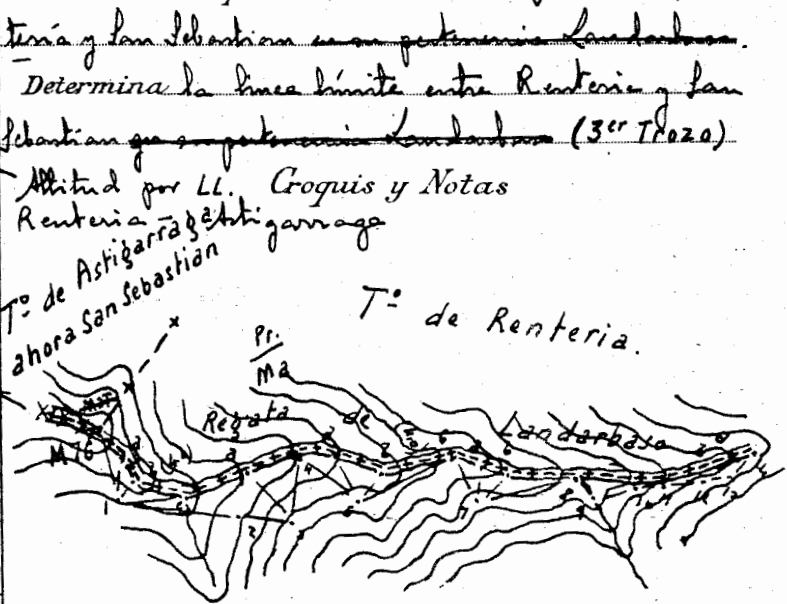 tería y San Sebastian en su pertenencia Landarbaso.
Determina la linea límite entre Renteria y San
Sebastian en su pertenencia Landarbaso (3er Trozo)
Altitud por LL. Croquis y Notas
Renteria - Astigarraga
Tº de Astigarraga
ahora San Sebastian
Tº de Renteria.
Pr.
Ma
Regata de Landarbaso
M76